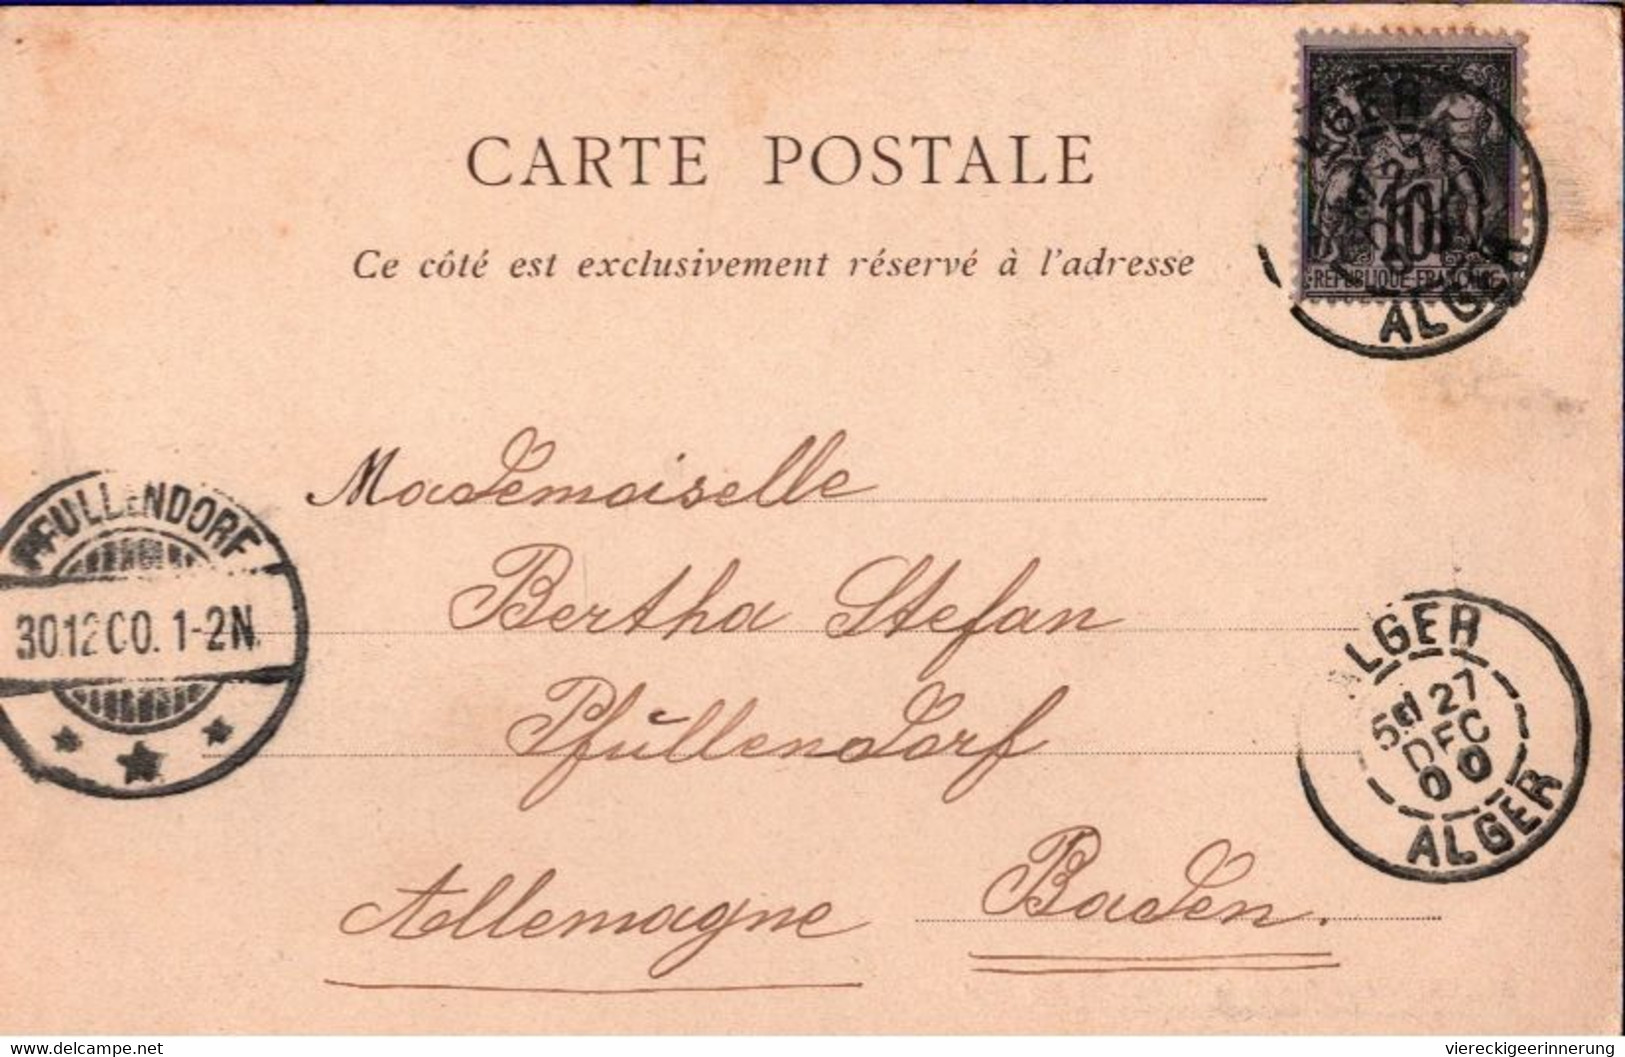 CARTE POSTALE
Ce côté est exclusivement réservé à l'adresse
ALGER
27
10
REPUBLIQUE FRANÇAISE
ALGER
Mademoiselle
Bertha Stefan
Pfullendorf
Baden.
Allemagne
PFULLENDORF
30 12 00. 1-2 N.
ALGER
27
DEC
00
ALGER
Top-Photo.com
viereckigeerinnerung